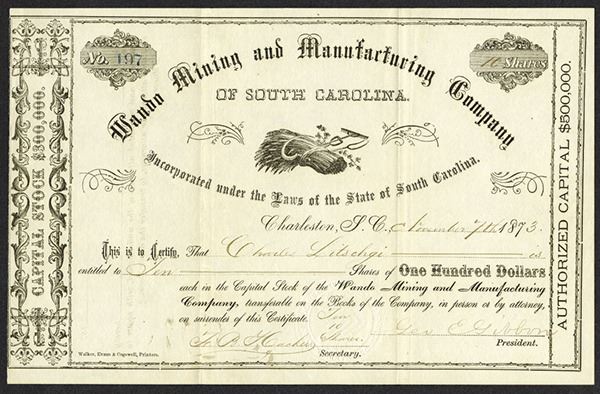 No. 197
10 Shares
Wando Mining and Manufacturing Company
OF SOUTH CAROLINA.
Incorporated under the Laws of the State of South Carolina.
Charleston, S.C. November 7th 1873.
This is to Certify, That Charles Litschgi is
entitled to Ten Shares of One Hundred Dollars
each in the Capital Stock of the Wando Mining and Manufacturing
Company, transferable on the Books of the Company, in person or by attorney,
on surrender of this Certificate.
Ten
10
Shares.
Secretary.
Geo E
President.
Walker, Evans & Cogswell, Printers.
CAPITAL STOCK $300,000.
AUTHORIZED CAPITAL $500,000.